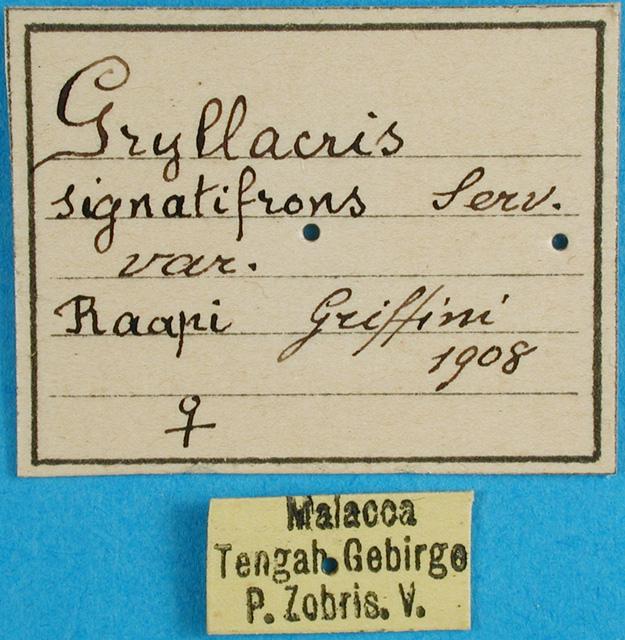 Gryllacris
signatifrons Serv.
var.
Raapi Griffini
1908
♀
Malacca
Tengah Gebirge
P. Zobris. V.